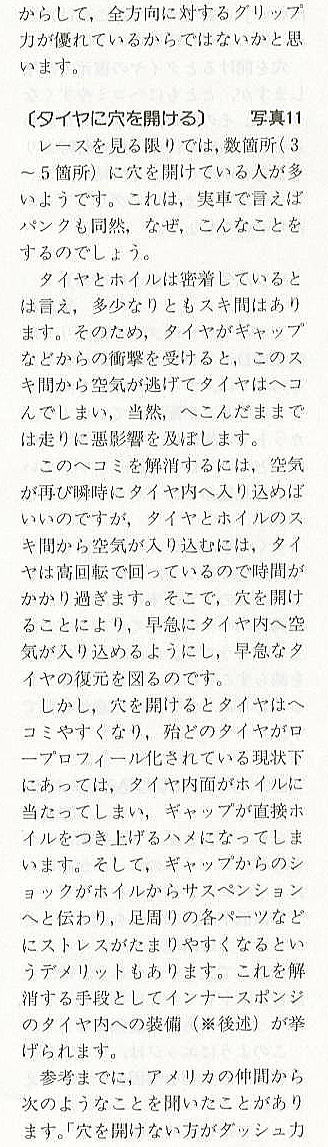 からして，全方向に対するグリップ
力が優れているからではないかと思
います。
〔タイヤに穴を開ける〕　　写真11
　レースを見る限りでは，数箇所（3
～5箇所）に穴を開けている人が多
いようです。これは，実車で言えば
パンクも同然，なぜ，こんなことを
するのでしょう。
　タイヤとホイルは密着していると
は言え，多少なりともスキ間はあり
ます。そのため，タイヤがギャップ
などからの衝撃を受けると，このス
キ間から空気が逃げてタイヤはヘコ
んでしまい，当然，へこんだままで
は走りに悪影響を及ぼします。
　このヘコミを解消するには，空気
が再び瞬時にタイヤ内へ入り込めば
いいのですが，タイヤとホイルのス
キ間から空気が入り込むには，タイ
ヤは高回転で回っているので時間が
かかり過ぎます。そこで，穴を開け
ることにより，早急にタイヤ内へ空
気が入り込めるようにし，早急なタ
イヤの復元を図るのです。
　しかし，穴を開けるとタイヤはへ
コミやすくなり，殆どのタイヤがロ
ープロフィール化されている現状下
にあっては，タイヤ内面がホイルに
当たってしまい，ギャップが直接ホ
イルをつき上げるハメになってしま
います。そして，ギャップからのシ
ョックがホイルからサスペンション
へと伝わり，足周りの各パーツなど
にストレスがたまりやすくなるとい
うデメリットもあります。これを解
消する手段としてインナースポンジ
のタイヤ内への装備（※後述）が挙
げられます。
　参考までに，アメリカの仲間から
次のようなことを聞いたことがあり
ます。「穴を開けない方がダッシュ力